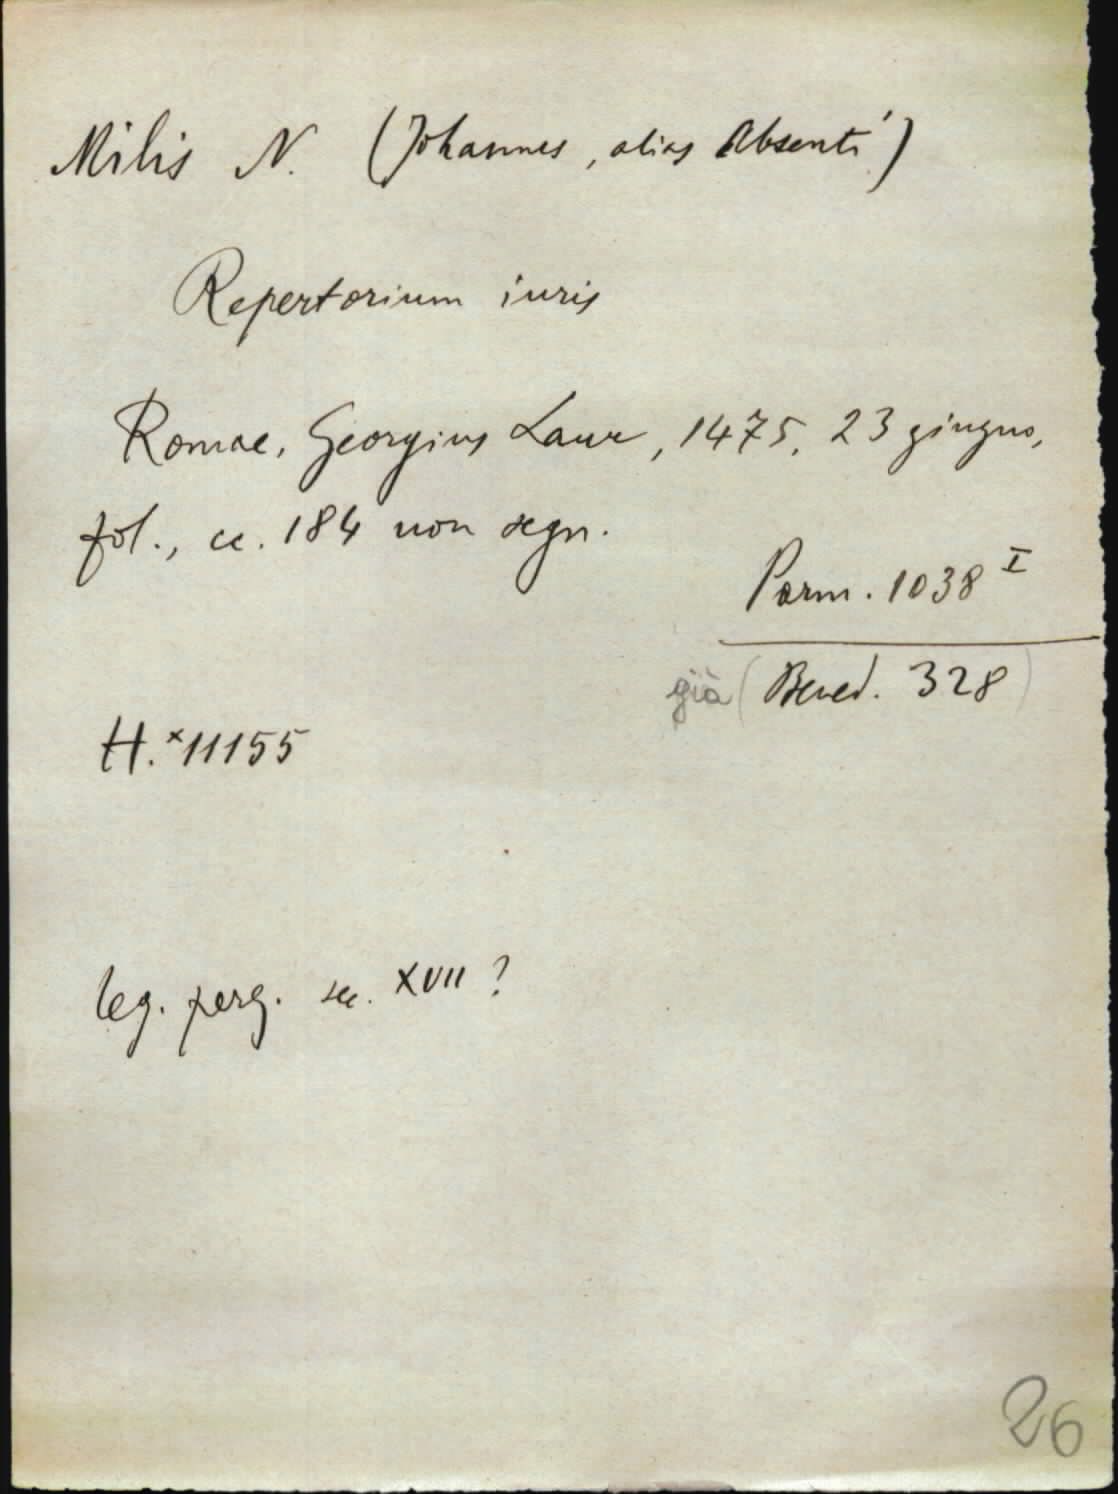 Milis N. (Johannes, alias Absenti')
Repertorium iuris
Romae, Georgius Laur, 1475, 23 giugno,
fol., cc. 184 non segn.
Parm. 1038 I
già (Bened. 328)
H. *11155
leg. perg. sec. XVII?
26